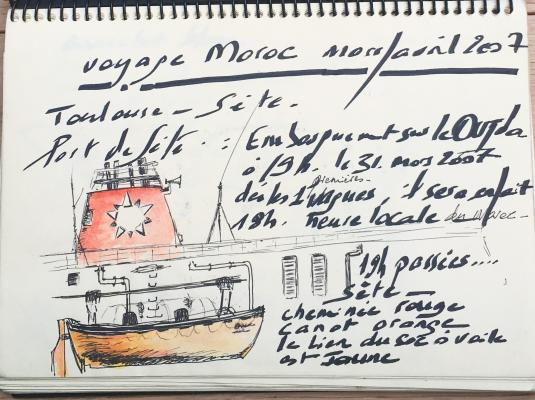 voyage Maroc mars/avril 2007
Toulouse - Sète.
Port de Sète : Embarquement sur le OUJda
à 19h. le 31. mars 2007
premières
dès les vagues, il sera en fait
18h. heure locale du Maroc -
19h passées....
Sète -
cheminée rouge
canot orange
le lien du sac à voile
est Jaune